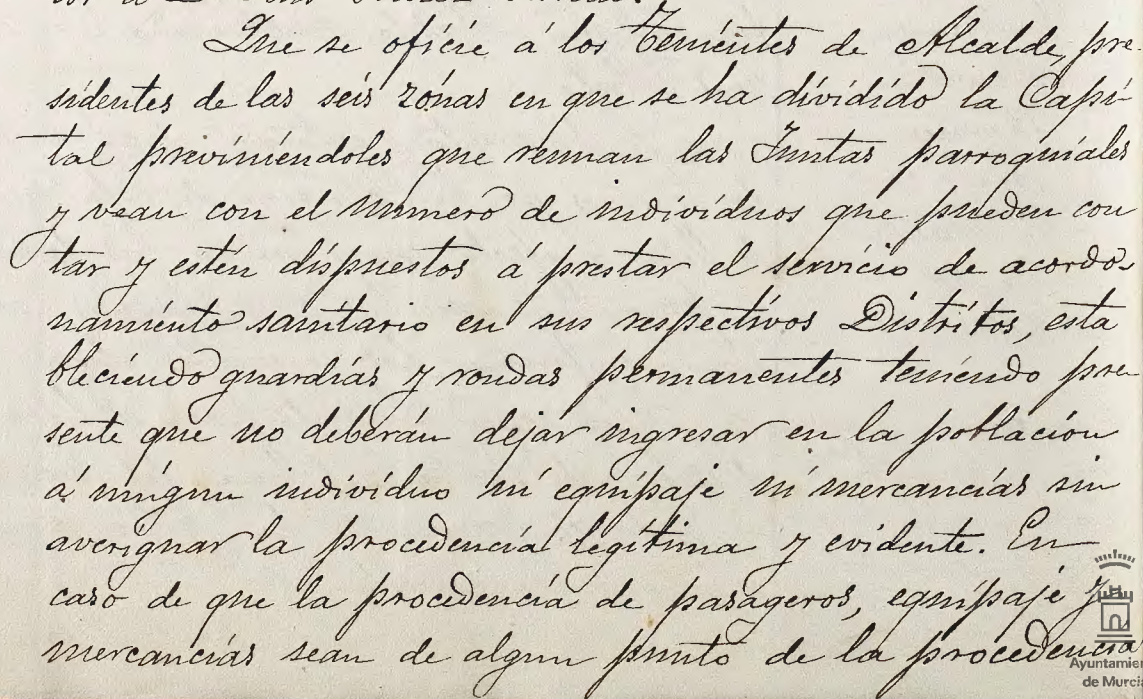 Que se oficie á los Tenientes de Alcalde, pre-
sidentes de las seis zónas en que se ha dividido la Capi-
tal previniéndoles que reunan las Juntas parroquiales
y vean con el número de individuos que pueden con
tar y estén dispuestos á prestar el servicio de acordo-
namiento sanitario en sus respectivos Distritos, esta
bleciendo guardias y rondas permanentes teniendo pre-
sente que no deberán dejar ingresar en la población
á ningun individuo ni equipaje ni mercancías sin
averiguar la procedencia legítima y evidente. En
caso de que la procedencia de pasageros, equipaje y
mercancías sean de algun punto de la procedencia
Ayuntamien
de Murcia